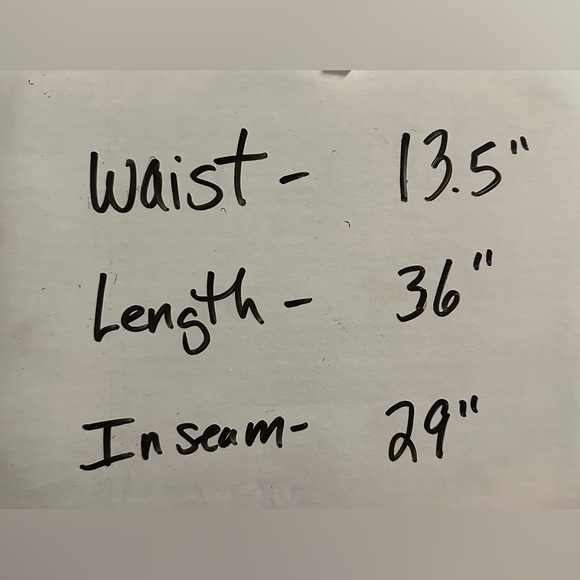 Waist - 13.5"
Length - 36"
Inseam- 29"